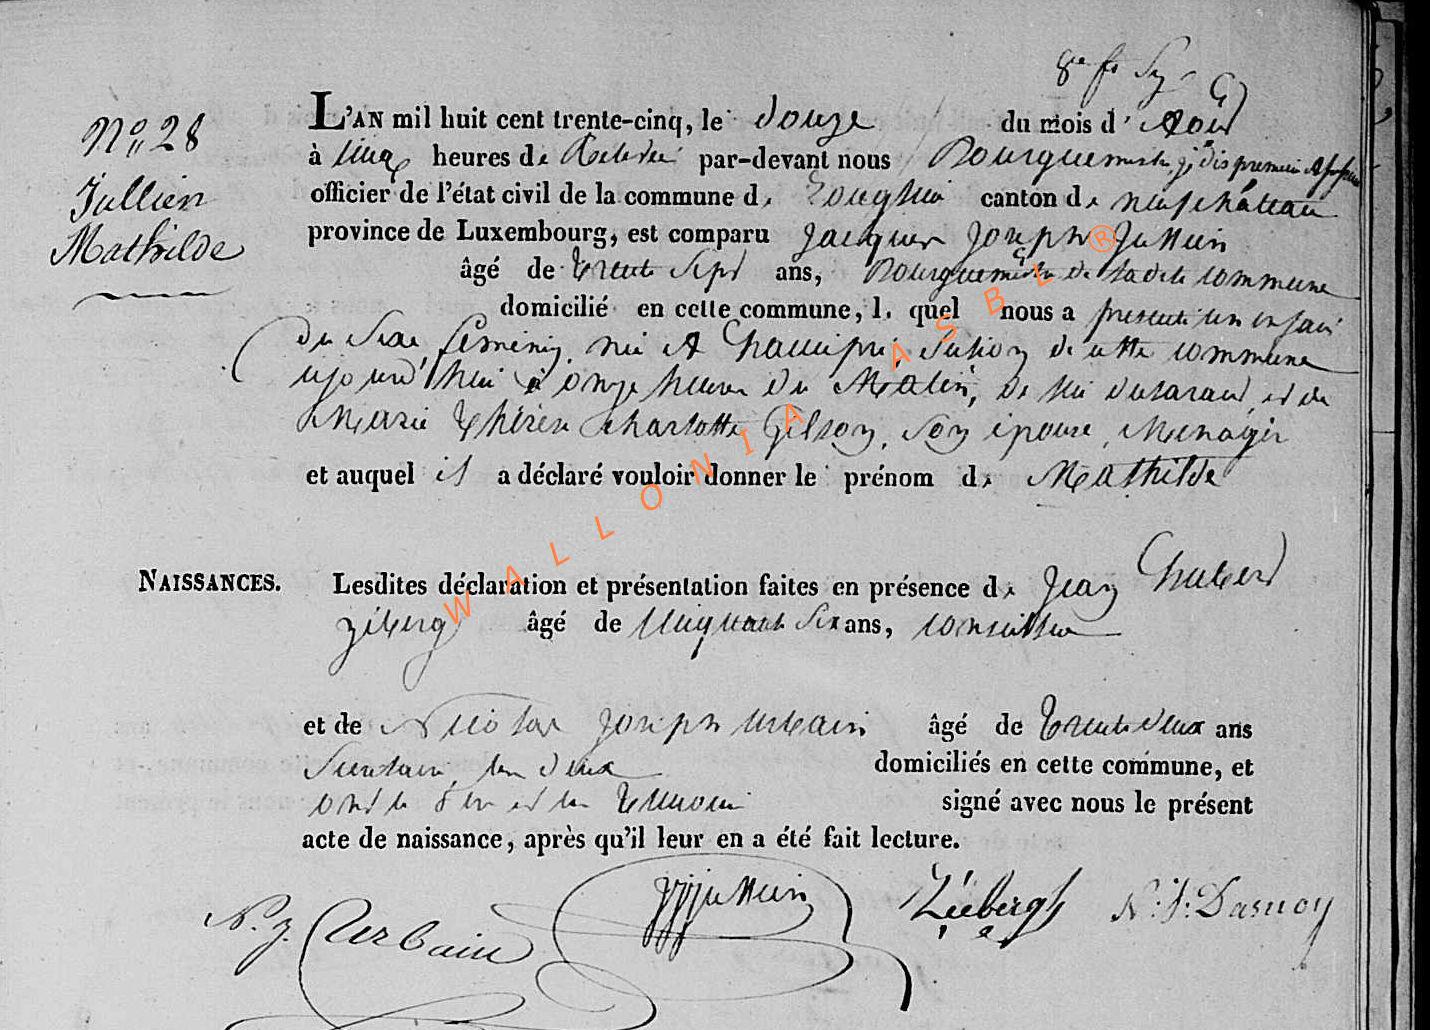 N° 28
Jullien
Mathilde
L'AN mil huit cent trente-cinq, le douze du mois d' Août
à cinq heures de Relevée par-devant nous Bourguemestre,
officier de l'état civil de la commune de canton de neufchâteau
province de Luxembourg, est comparu Jacques Joseph Jullien
âgé de trente sept ans, Bourguemestre de ladite commune
domicilié en cette commune, lequel nous a présenté un enfant
du sexe féminin, née A section de cette commune
ujourd'hui à onze heures du Matin, de lui déclarant, et de
Marie Thérèse Charlotte Gilson, son épouse, Ménagère
et auquel il a déclaré vouloir donner le prénom de Mathilde
NAISSANCES.
Lesdites déclaration et présentation faites en présence de Jean
âgé de cinquante six ans, conseiller
et de Nicolas Joseph Urbain âgé de trente deux ans
Secrétaire, les deux domiciliés en cette commune, et
ont le et les témoins signé avec nous le présent
acte de naissance, après qu'il leur en a été fait lecture.
N. J. Urbain
JJ Jullien
N. J. Dasnoy
WALLONIA ASBL ®